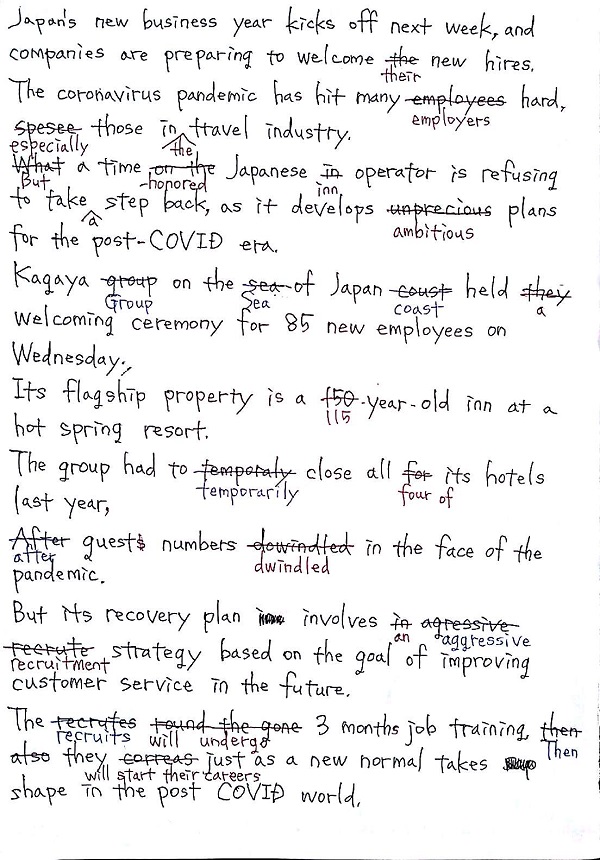 Japan's new business year kicks off next week, and
companies are preparing to welcome the new hires.
their
The coronavirus pandemic has hit many employees hard,
employers
spesee those in travel industry.
especially the
What a time on the Japanese in operator is refusing
But -honored inn
to take step back, as it develops unprecious plans
a ambitious
for the post-COVID era.
Kagaya group on the sea of Japan coust held they
Group Sea coast a
welcoming ceremony for 85 new employees on
Wednesday.
Its flagship property is a 150-year-old inn at a
115
hot spring resort.
The group had to temporaly close all for its hotels
temporarily four of
last year,
After guests numbers dowindled in the face of the
after dwindled
pandemic.
But its recovery plan involves in agressive
an aggressive
recrute strategy based on the goal of improving
recruitment
customer service in the future.
The recrutes round the gone 3 months job training, then
recruits will undergo Then
also they correas just as a new normal takes
will start their careers
shape in the post COVID world.